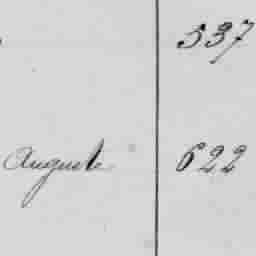 537
Auguste 622